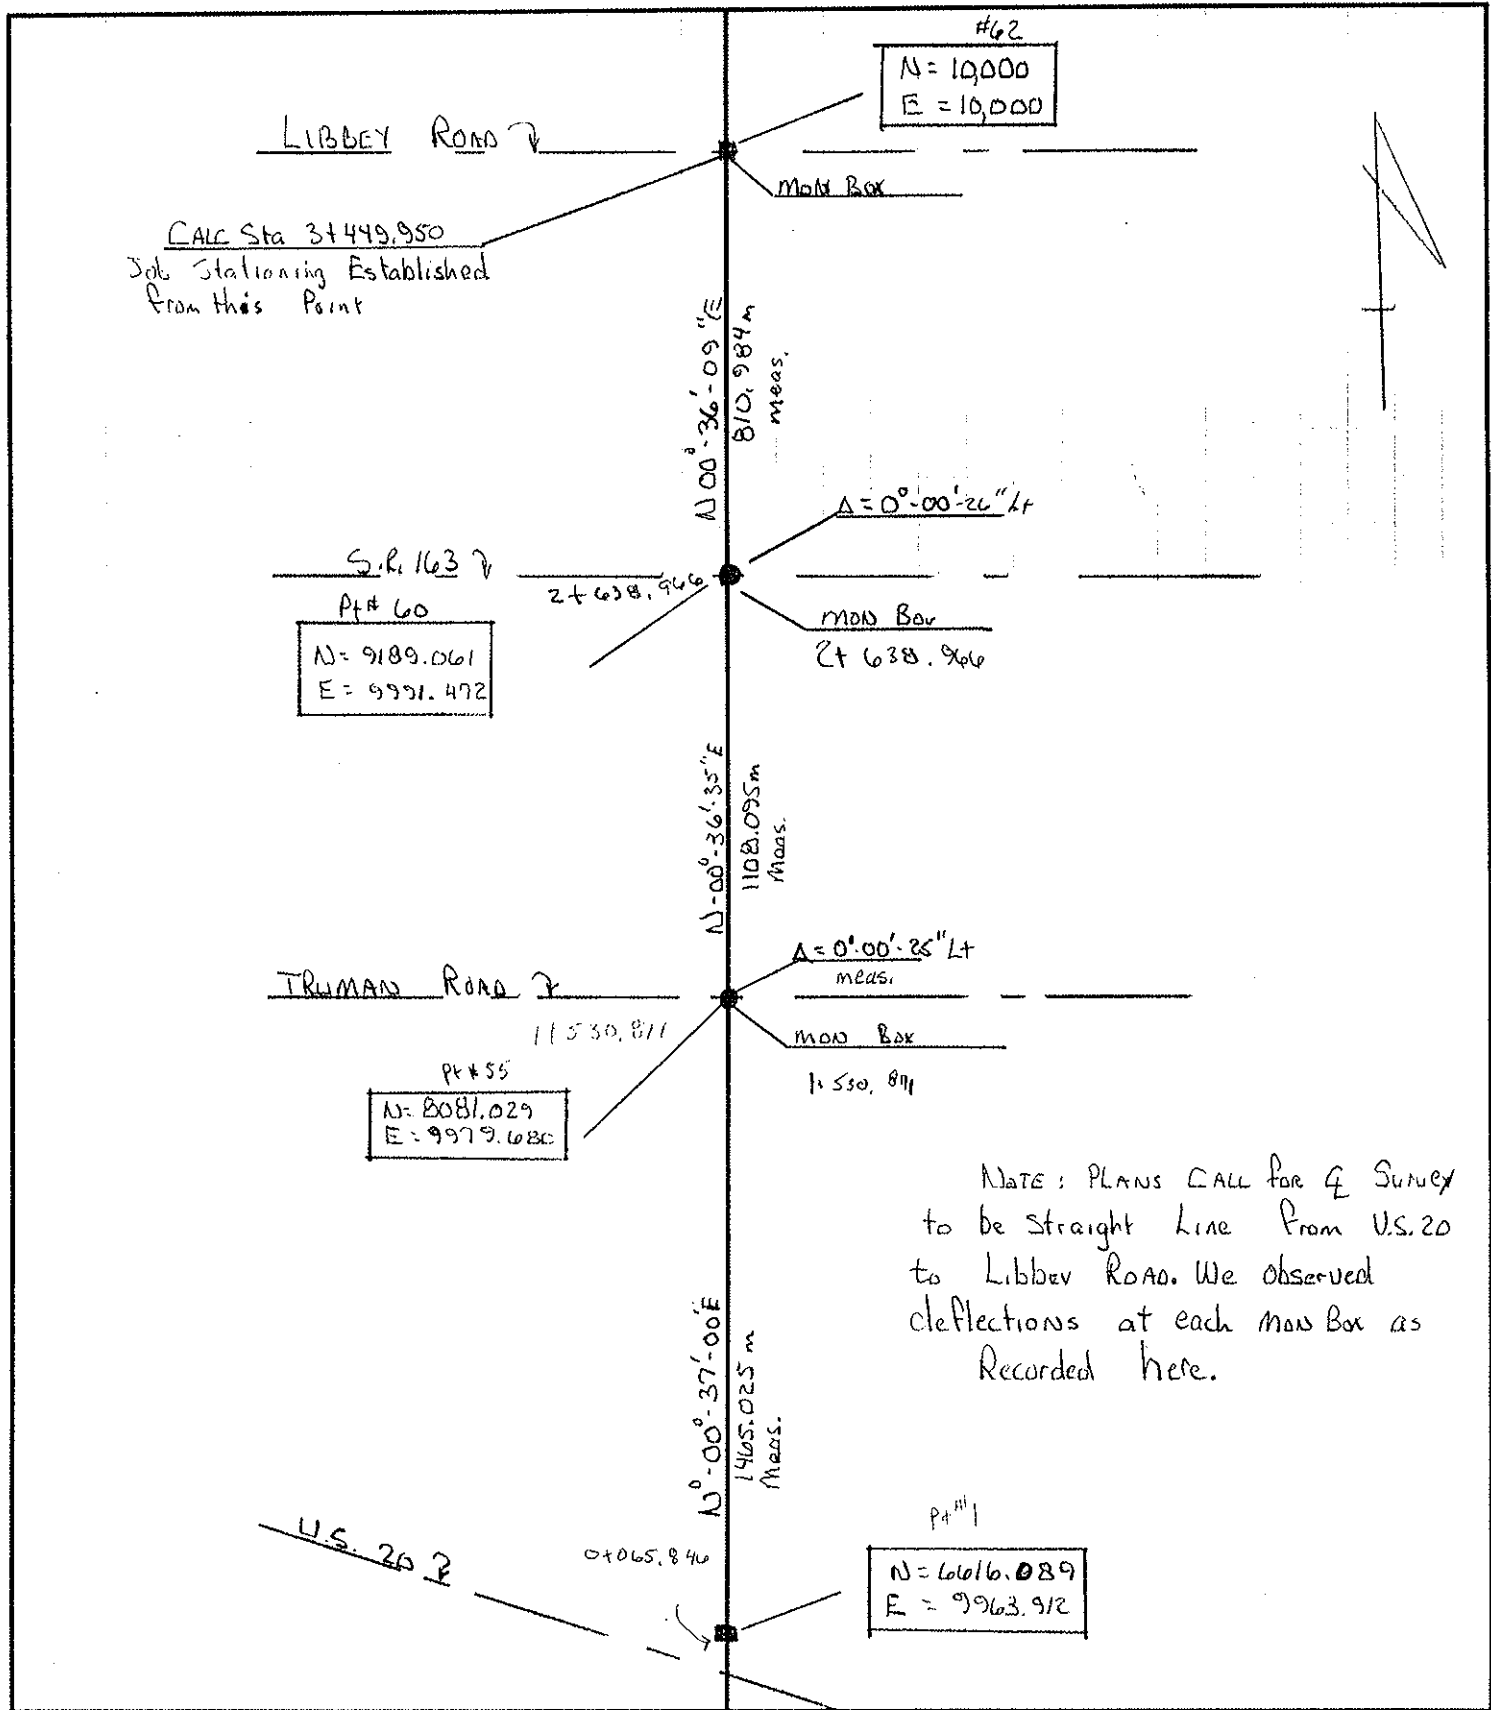 #62
N = 10,000
E = 10,000
LIBBEY ROAD
MON BOX
CALC Sta 3+449.950
Job Stationing Established
from this Point
N 00°-36'-09"E
810.984m
meas.
Δ = 0°-00'-26" Lt
S.R. 163
2+638.966
Pt# 60
N= 9189.061
E= 9991.472
MON Box
2+638.966
N-00°-36'-35"E
1108.095m
Meas.
Δ = 0°-00'-25" Lt
meas.
TRUMAN ROAD
1+530.871
MON BOX
1+530.871
Pt# 55
N= 8081.029
E= 9979.680
NOTE: PLANS CALL for ℄ Survey
to be Straight Line from U.S. 20
to Libbey ROAD. We observed
deflections at each MON Box as
Recorded here.
N°-00°-37'-00"E
1465.025 m
Meas.
U.S. 20
0+065.846
Pt# 1
N= 6616.089
E = 9963.912